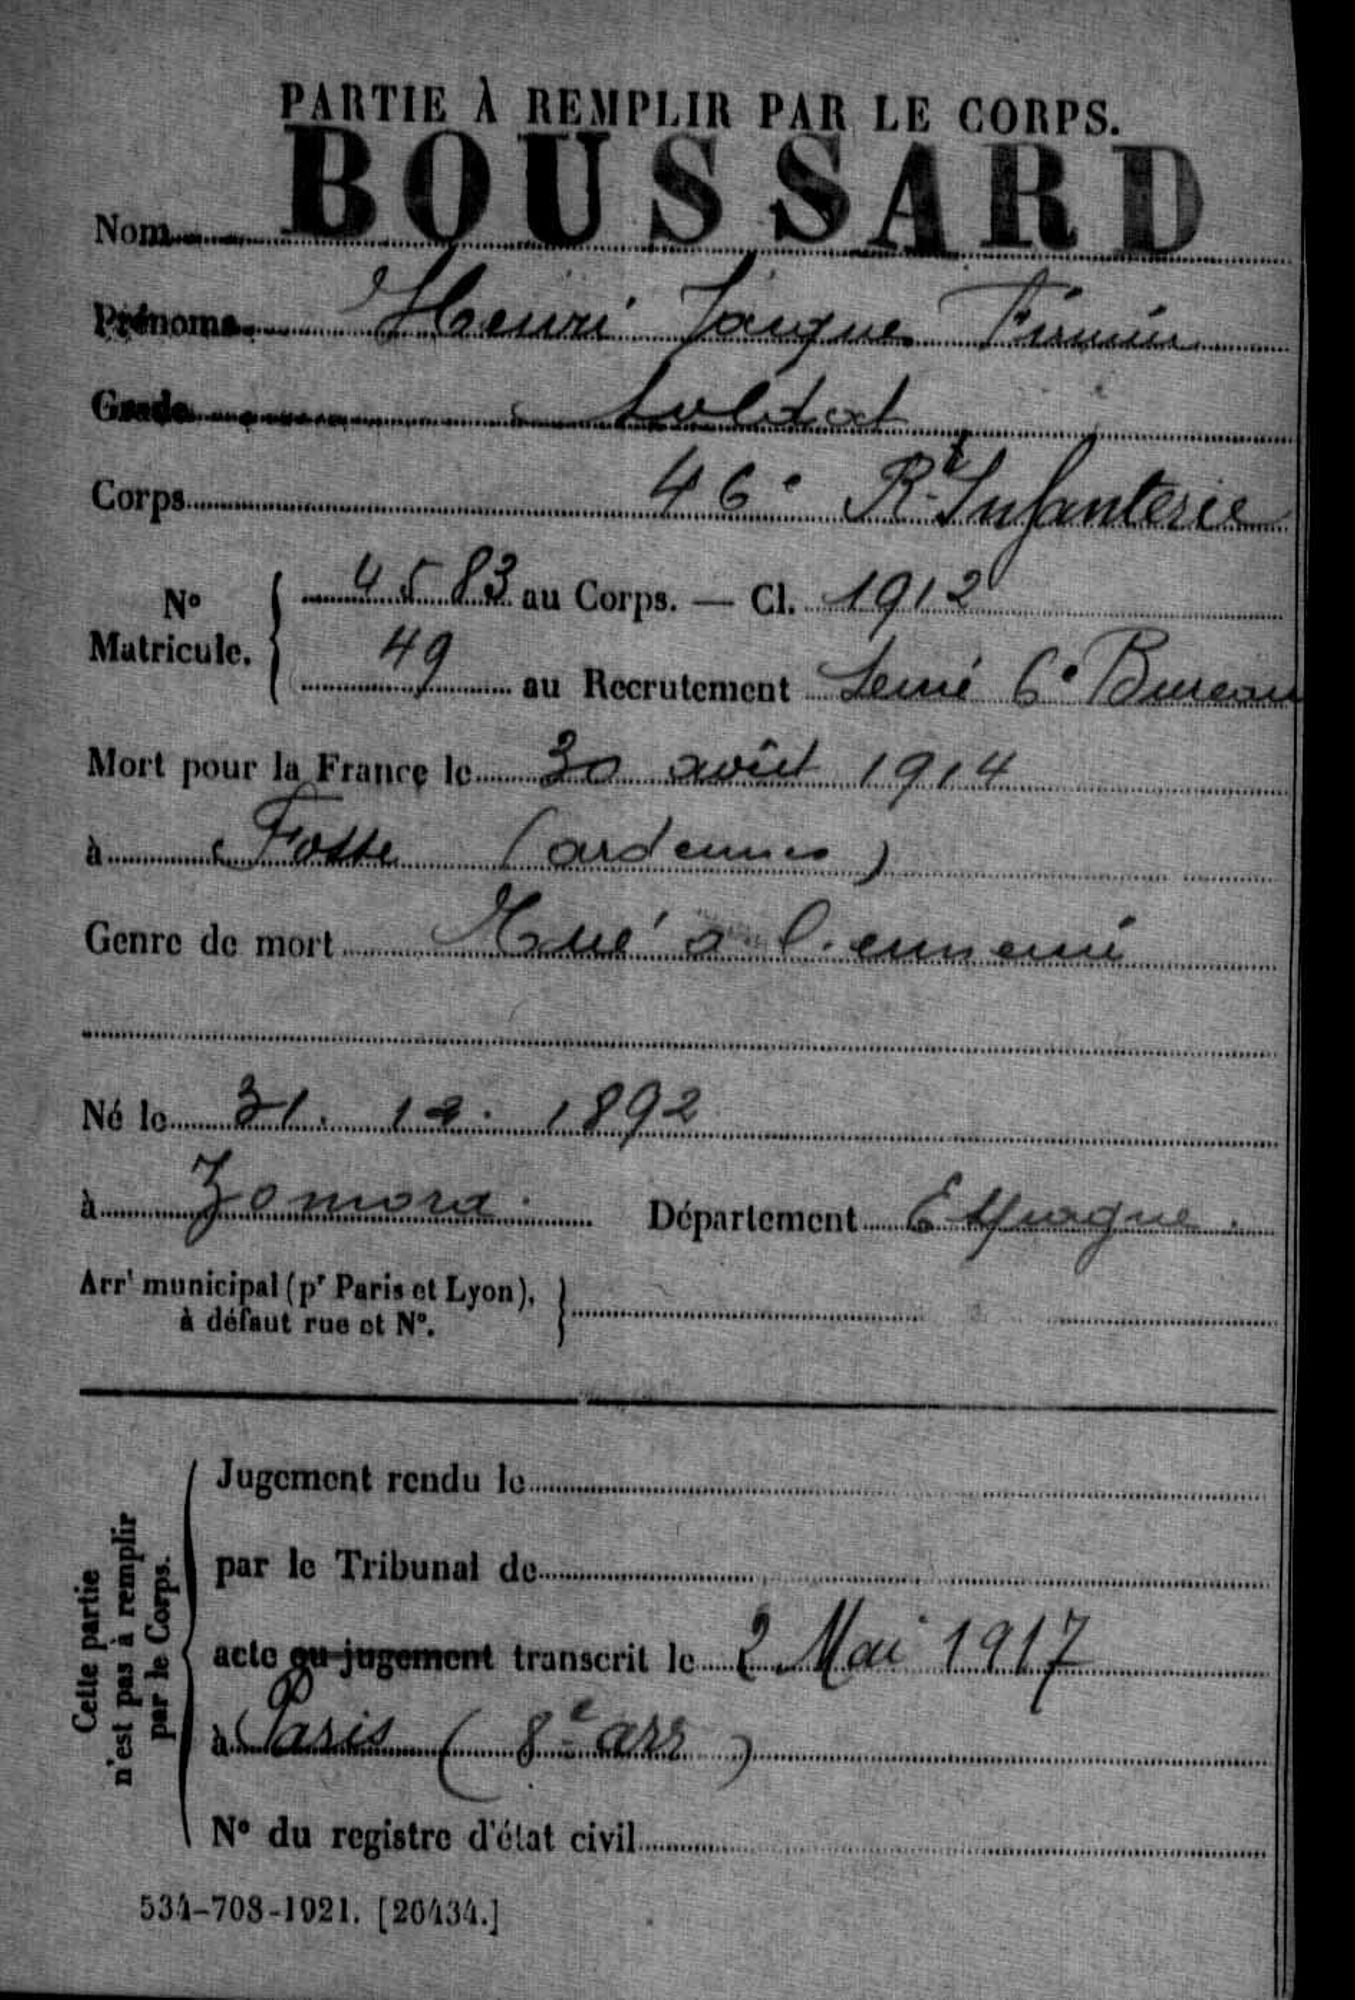 PARTIE À REMPLIR PAR LE CORPS.
Nom BOUSSARD
Prénoms Henri Jacque Firmin
Grade Soldat
Corps 46e Rt Infanterie
No Matricule. { 4583 au Corps. — Cl. 1912
49 au Recrutement Seine 6e Bureau
Mort pour la France le 30 août 1914
à Fosse (ardennes)
Genre de mort Tué à l'ennemi
Né le 31. 12. 1892
à Zamora. Département Espagne.
Arrt municipal (pr Paris et Lyon), à défaut rue et No. }
Cette partie n'est pas à remplir par le Corps.
Jugement rendu le
par le Tribunal de
acte ou jugement transcrit le 2 Mai 1917
à Paris (8e arr)
No du registre d'état civil
534-708-1921. [26434.]